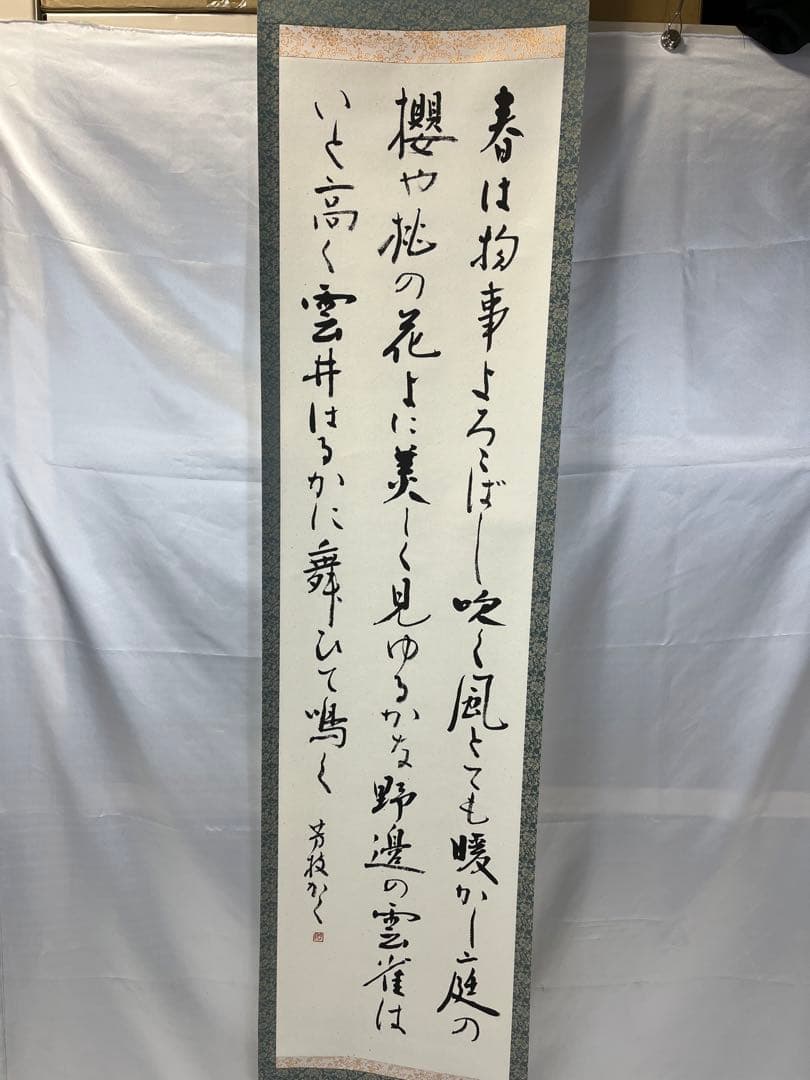 春は物事よろこばし吹く風とても暖かし庭の
櫻や桃の花よに美しく見ゆるかな野邊の雲雀は
いと高く雲井はるかに舞ひて鳴く
芳枝かく